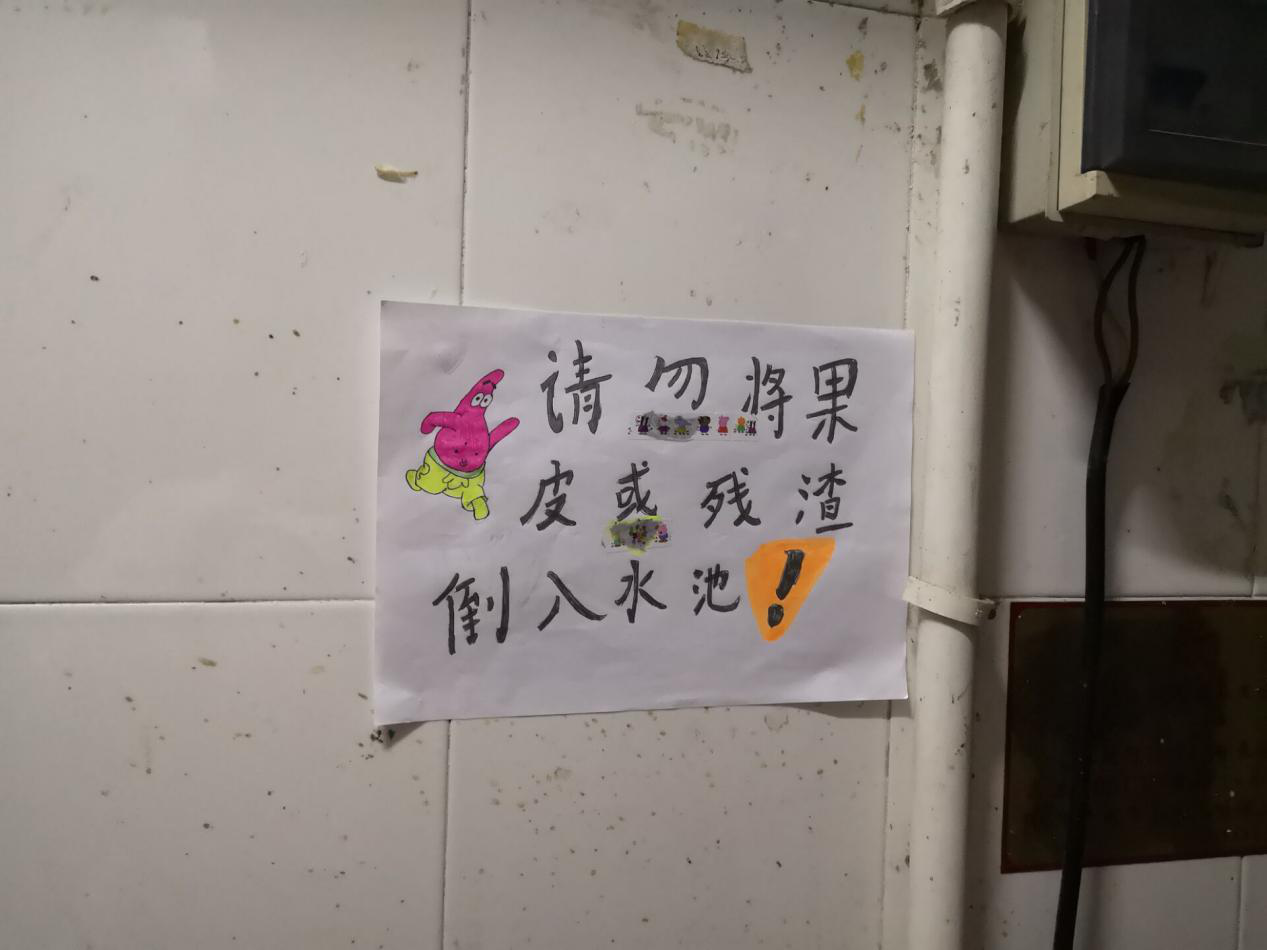 请勿将果
皮或残渣
倒入水池!